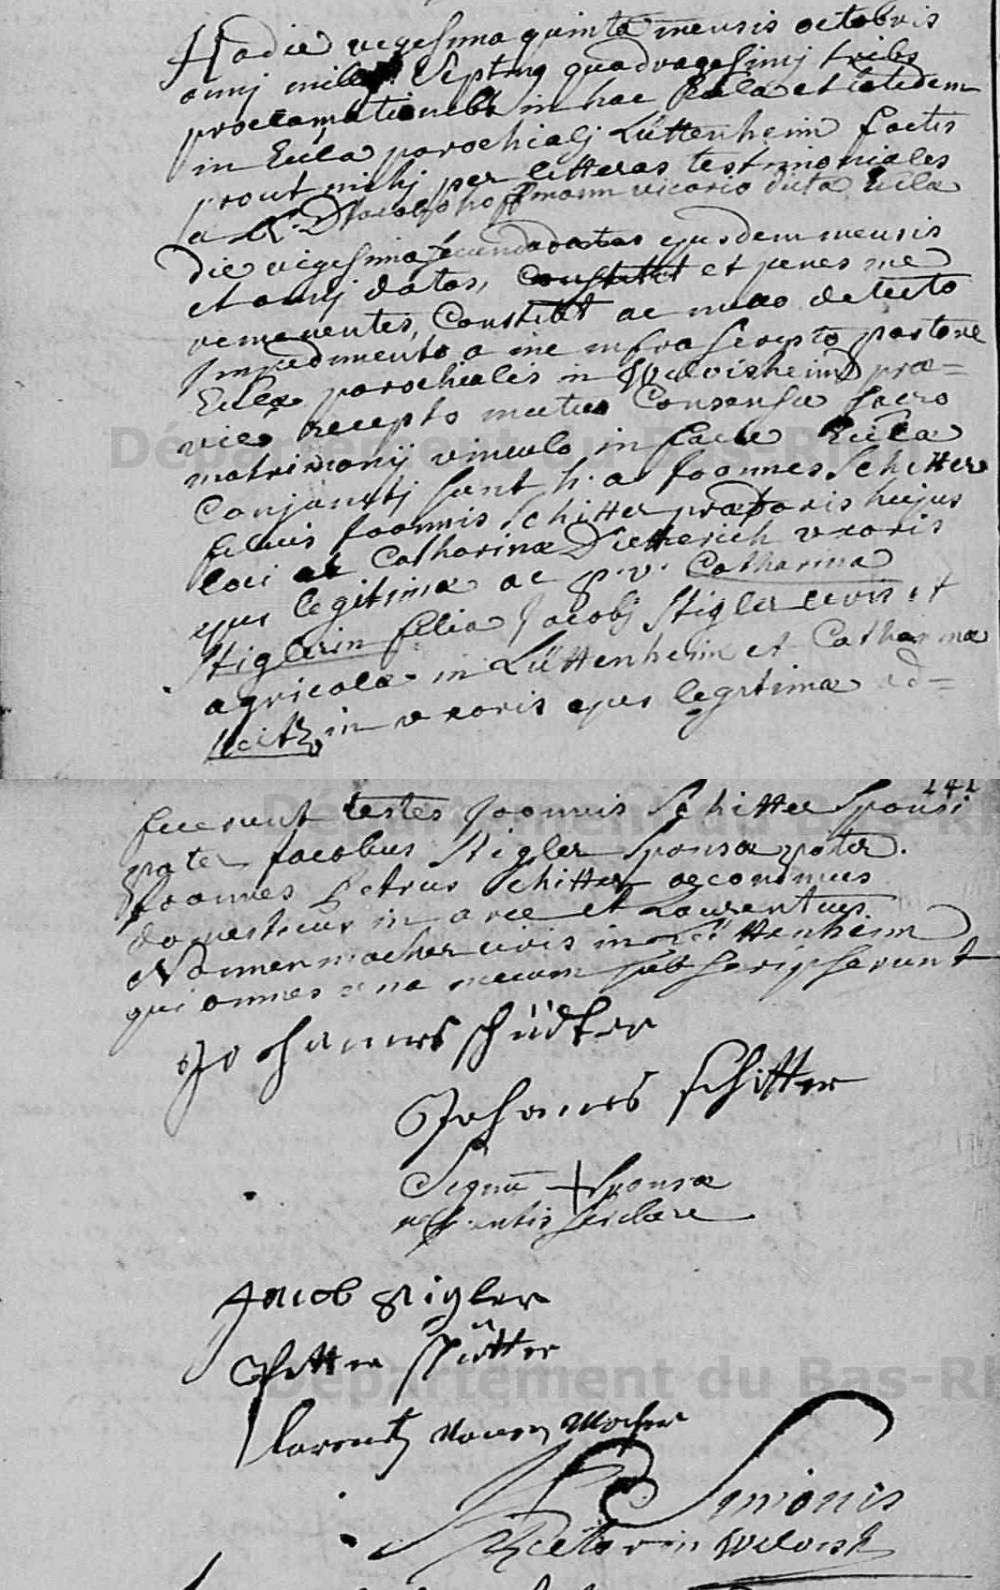 Hodie vigesima quinta mensis octobris
anni mille Septing quadragesimj tribs
proclamationibs in hac Eccla et totidem
in Eccla parochialj Lüttenheim factis
prout mihj per litteras testimoniales
a R. D. Jacobo hoffmann vicario dicta Eccla
die vigesima secunda ejusdem mensis
et annj datas, Constitit et penes me
remanentes, Constitit ac nullo detecto
Impedimento a me infra scripto pastore
Eccla parochialis in Wilvisheim præ=
vio recepto mutuo Consensu sacro
matrimonij vinculo in facie Eccla
Conjunctj sunt h. a. Joannes Schitter
filius Joannis Schitter prætoris hujus
loci et Catharinæ Dietterich uxoris
ejus legitimæ ac p. v. Catharina
Stiglerin filia Jacobj Stigler civis et
agricolæ in Lüttenheim et Catharinæ
in uxoris ejus legitimæ ad=
Département du Bas-Rhin
241
fuerunt testes Joannis Schitter Sponsi
pater Jacobus Stigler Sponsæ pater.
Joannes Petrus Schitter oeconomus
domesticus in arce et Laurentius
Nonnenmacher civis in Lüttenheim
qui omnes una mecum subscripserunt
Johannes schütter
Johanes schitter
Signū + Sponsæ
Jacob stigler
Petter schütter
Lorentz Nonen Macher
Simonis
Rector in Wilvish
Département du Bas-R